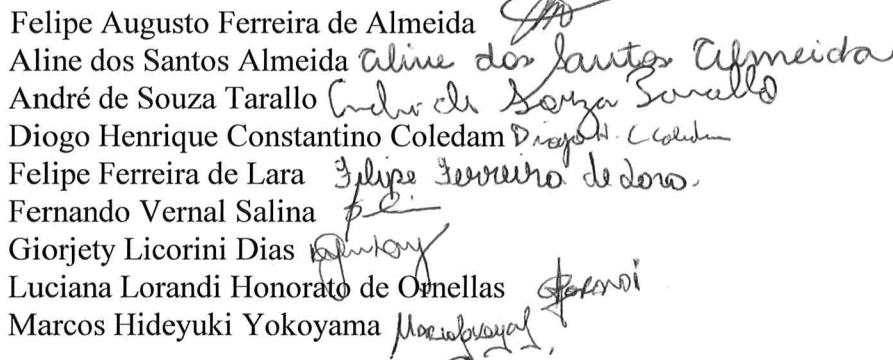 Felipe Augusto Ferreira de Almeida
Aline dos Santos Almeida Aline dos Santos Almeida
André de Souza Tarallo André de Souza Tarallo
Diogo Henrique Constantino Coledam Diogo H. C Coledam
Felipe Ferreira de Lara Felipe Ferreira de Lara.
Fernando Vernal Salina
Giorjety Licorini Dias
Luciana Lorandi Honorato de Ornellas
Marcos Hideyuki Yokoyama